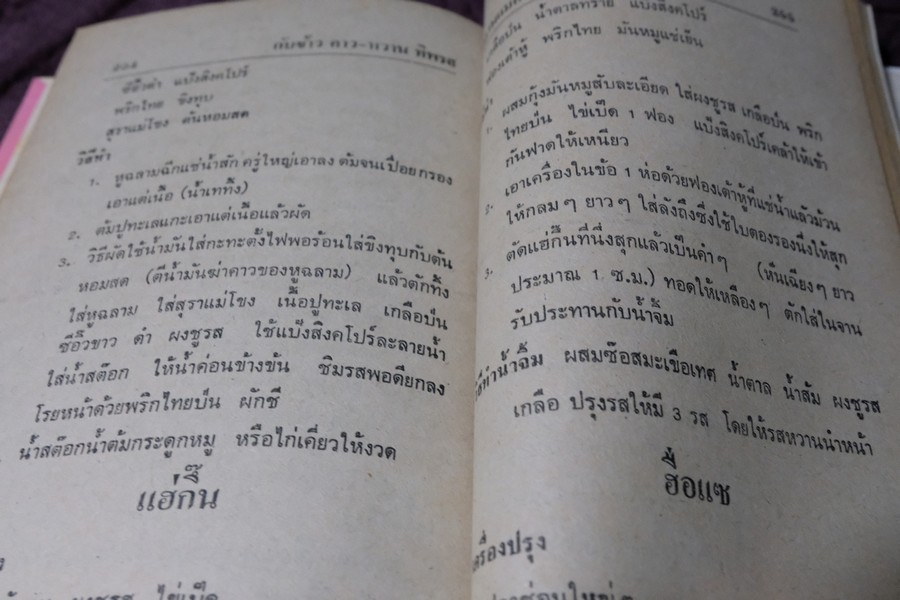 กับข้าว คาว-หวาน ทิพรส
ซีอิ๊วดำ แป้งสิงคโปร์
พริกไทย ขิงทุบ
สุราแม่โขง ต้นหอมสด
วิธีทำ
1. หูฉลามฉีกแช่น้ำสักครู่ใหญ่เอาลง ต้มจนเปื่อยกรอง
เอาแต่เนื้อ (น้ำเททิ้ง)
2. ต้มปูทะเลแกะเอาแต่เนื้อแล้วผัด
3. วิธีผัดใช้น้ำมันใส่กะทะตั้งไฟพอร้อนใส่ขิงทุบกับต้น
หอมสด (ตีน้ำมันฆ่าคาวของหูฉลาม) แล้วตักทิ้ง
ใส่หูฉลาม ใส่สุราแม่โขง เนื้อปูทะเล เกลือป่น
ซีอิ๊วขาว ดำ ผงชูรส ใช้แป้งสิงคโปร์ละลายน้ำ
ใส่น้ำสต๊อก ให้น้ำค่อนข้างข้น ชิมรสพอดียกลง
โรยหน้าด้วยพริกไทยป่น ผักชี
น้ำสต๊อกน้ำต้มกระดูกหมู หรือไก่เคี่ยวให้งวด
แฮ่กึ๊น
ผงชูรส ไข่เป็ด
เกลือป่น น้ำตาลทราย แป้งสิงคโปร์
ฟองเต้าหู้ พริกไทย มันหมูแช่เย็น
1. ผสมกุ้งมันหมูสับละเอียด ใส่ผงชูรส เกลือป่น พริก
ไทยป่น ไข่เป็ด 1 ฟอง แป้งสิงคโปร์เคล้าให้เข้า
กันฟาดให้เหนียว
2. เอาเครื่องในข้อ 1 ห่อด้วยฟองเต้าหู้ที่แช่น้ำแล้วม้วน
ให้กลมๆ ยาวๆ ใส่ลังถึงซึ่งใช้ใบตองรองนึ่งให้สุก
3. ตัดแฮ่กึ๊นที่นึ่งสุกแล้วเป็นคำๆ (หั่นเฉียงๆ ยาว
ประมาณ 1 ซ.ม.) ทอดให้เหลืองๆ ตักใส่ในจาน
รับประทานกับน้ำจิ้ม
วิธีทำน้ำจิ้ม ผสมซ๊อสมะเขือเทศ น้ำตาล น้ำส้ม ผงชูรส
เกลือ ปรุงรสให้มี 3 รส โดยให้รสหวานนำหน้า
ฮื่อแซ
เครื่องปรุง